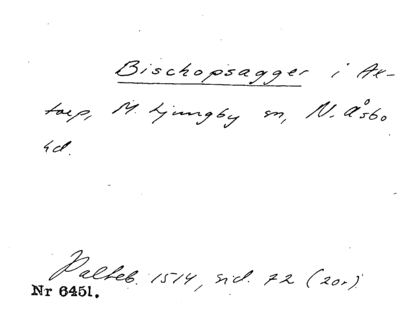 Bischopsagger i Ax-
torp, M. Ljungby sn, N. Åsbo
hd.
Palteb. 1514, sid. 72 (20r)
Nr 6451.